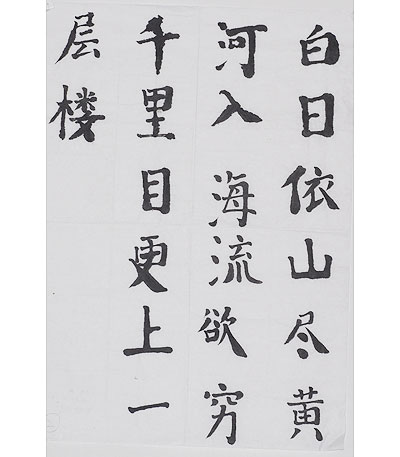 白日依山尽黄
河入海流欲穷
千里目更上一
层楼